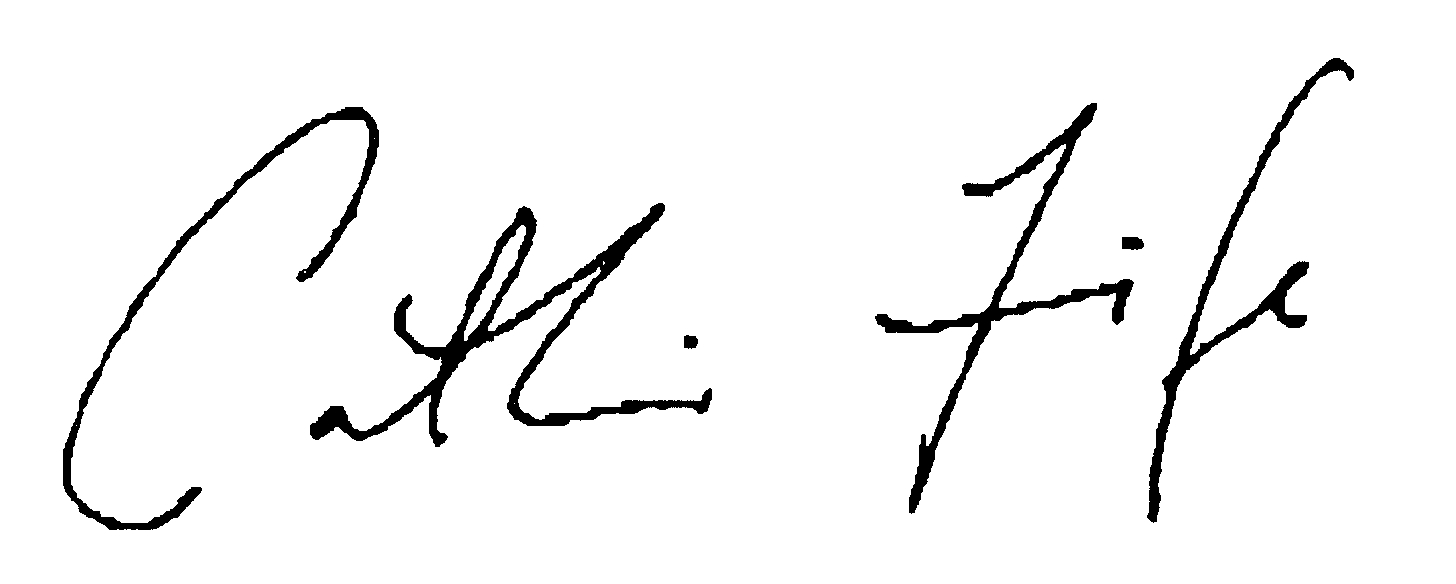 Cathi Fife